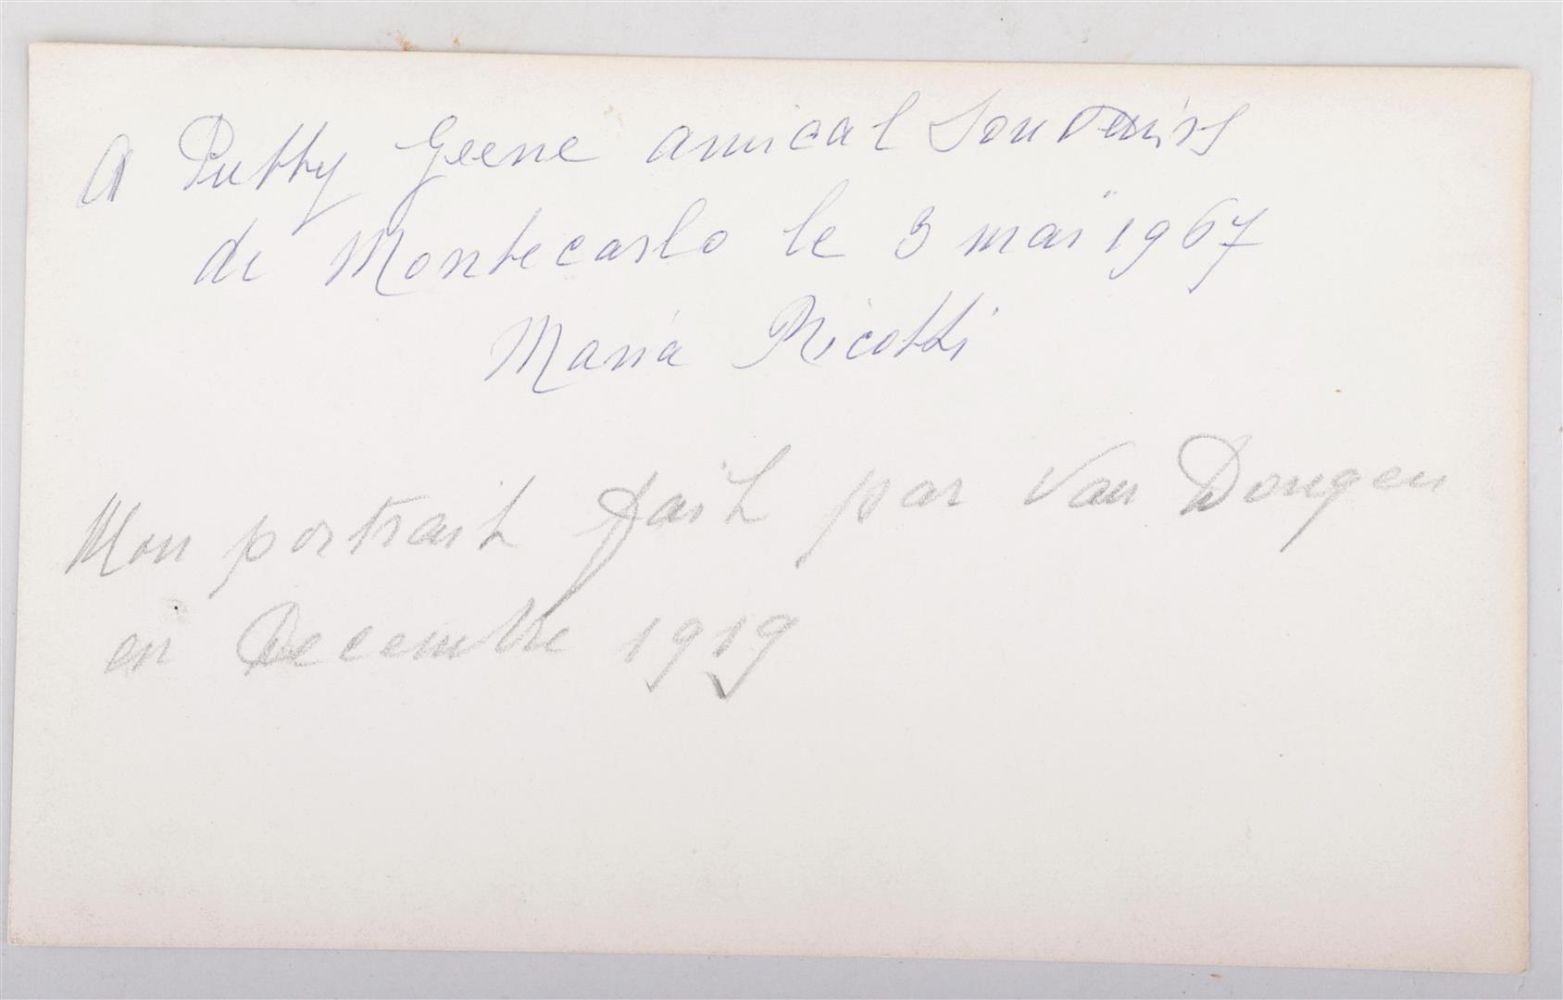 A Putty Geene amical Souvenirs
de Montecarlo le 3 mai 1967
Maria Ricotti
Mon portrait fait par Van Dongen
en Decembre 1919